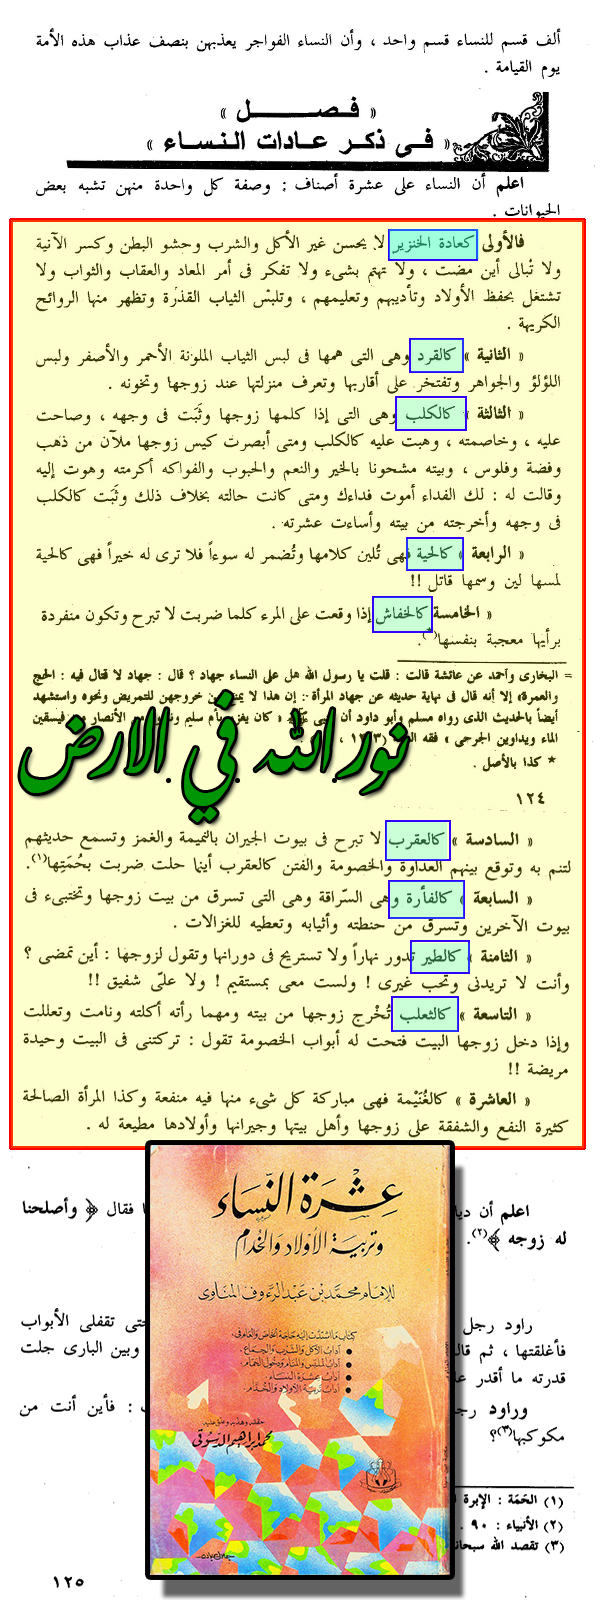 ألف قسم للنساء قسم واحد ، وأن النساء الفواجر يعذبهن بنصف عذاب هذه الأمة
يوم القيامة .
« فـصـــــل »
« فـى ذكـر عـادات النسـاء »
اعلم أن النساء على عشرة أصناف : وصفة كل واحدة منهن تشبه بعض
الحيوانات .
فالأولى كعادة الخنزير لا يحسن غير الأكل والشرب وحشو البطن وكسر الآنية
ولا تُبالى أين مضت ، ولا تهتم بشىء ولا تفكر فى أمر المعاد والعقاب والثواب ولا
تشتغل بحفظ الأولاد وتأديبهم وتعليمهم ، وتلبسْ الثياب القذرة وتظهر منها الروائح
الكريهة .
« الثانية » كالقرد وهى التى همها فى لبس الثياب الملونة الأحمر والأصفر ولبس
اللؤلؤ والجواهر وتفتخر على أقاربها وتعرف منزلتها عند زوجها وتخونه .
« الثالثة » كالكلب وهى التى إذا كلمها زوجها وثَبَت فى وجهه ، وصاحت
عليه ، وخاصمته ، وهبت عليه كالكلب ومتى أبصرت كيس زوجها ملآن من ذهب
وفضة وفلوس ، وبيته مشحونا بالخير والنعم والحبوب والفواكه أكرمته وهوت إليه
وقالت له : لك الفداء أموت فداءك ومتى كانت حالته بخلاف ذلك وثَبَت كالكلب
فى وجهه وأخرجته من بيته وأساءت عشرته .
« الرابعة » كالحية فهى تُلين كلامها وتُضمر له سوءاً فلا ترى له خيراً فهى كالحية
لمسها لين وسمها قاتل !!
« الخامسة كالخفاش إذا وقعت على المرء كلما ضربت لا تبرح وتكون منفردة
برأيها معجبة بنفسها(*).
= البخارى وأحمد عن عائشة قالت : قلت يا رسول الله هل على النساء جهاد ؟ قال : جهاد لا قتال فيه : الحج
والعمرة» إلا أنه قال فى نهاية حديثه عن جهاد المرأة : إن هذا لا يمنع من خروجهن للتمريض ونحوه واستشهد
أيضاً بالحديث الذى رواه مسلم وأبو داود أن النبى ﷺ « كان يغزو بأم سليم من الأنصار فيسقين
الماء ويداوين الجرحى » فقه
* كذا بالأصل .
نور الله في الارض
١٢٤
« السادسة » كالعقرب لا تبرح فى بيوت الجيران بالنميمة والغمز وتسمع حديثهم
لتنم به وتوقع بينهم العداوة والخصومة والفتن كالعقرب أينما حلت ضربت بحُمَتِها(١).
« السابعة » كالفأرة وهى السّراقة وهى التى تسرق من بيت زوجها وتختبىء فى
بيوت الآخرين وتسرق من حنطته وأثيابه وتعطيه للغزالات .
« الثامنة » كالطير تدور نهاراً ولا تستريح فى دورانها وتقول لزوجها : أين تمضى ؟
وأنت لا تريدنى وتحب غيرى ! ولست معى بمستقيم ! ولا علىّ شفيق !!
« التاسعة » كالثعلب تُخْرج زوجها من بيته ومهما رأته أكلته ونامت وتعللت
وإذا دخل زوجها البيت فتحت له أبواب الخصومة تقول : تركتنى فى البيت وحيدة
مريضة !!
« العاشرة » كالغُنَيْمة فهى مباركة كل شىء منها فيه منفعة وكذا المرأة الصالحة
كثيرة النفع والشفقة على زوجها وأهل بيتها وجيرانها وأولادها مطيعة له .
اعلم أن فقال ﴿ وأصلحنا
له زوجه ﴾(٢).
راود رجل تقفلى الأبواب
فأغلقتها ، ثم وبين البارى جلت
قدرته ما أقدر
وراود : فأين أنت من
مكوكبها(٣)؟
(١) الحَمَة : الإبرة
(٢) الأنبياء : ٩٠ .
(٣) تقصد الله
١٢٥
عِشْرَة النِّسَاء
وتربية الأولاد والخدام
للإمام محمد بن عبد الرءوف المناوى
كتاب ما اشتدت إليه حاجة الخاص والعام فى
• آداب الأكل والشرب والجماع .
• آداب الملبس والمنام ودخول الحمام .
• آداب عشرة النساء .
• آداب تربية الأولاد والخدام .
حققه وهذبه وعلق عليه
محمد إبراهيم الدسوقى